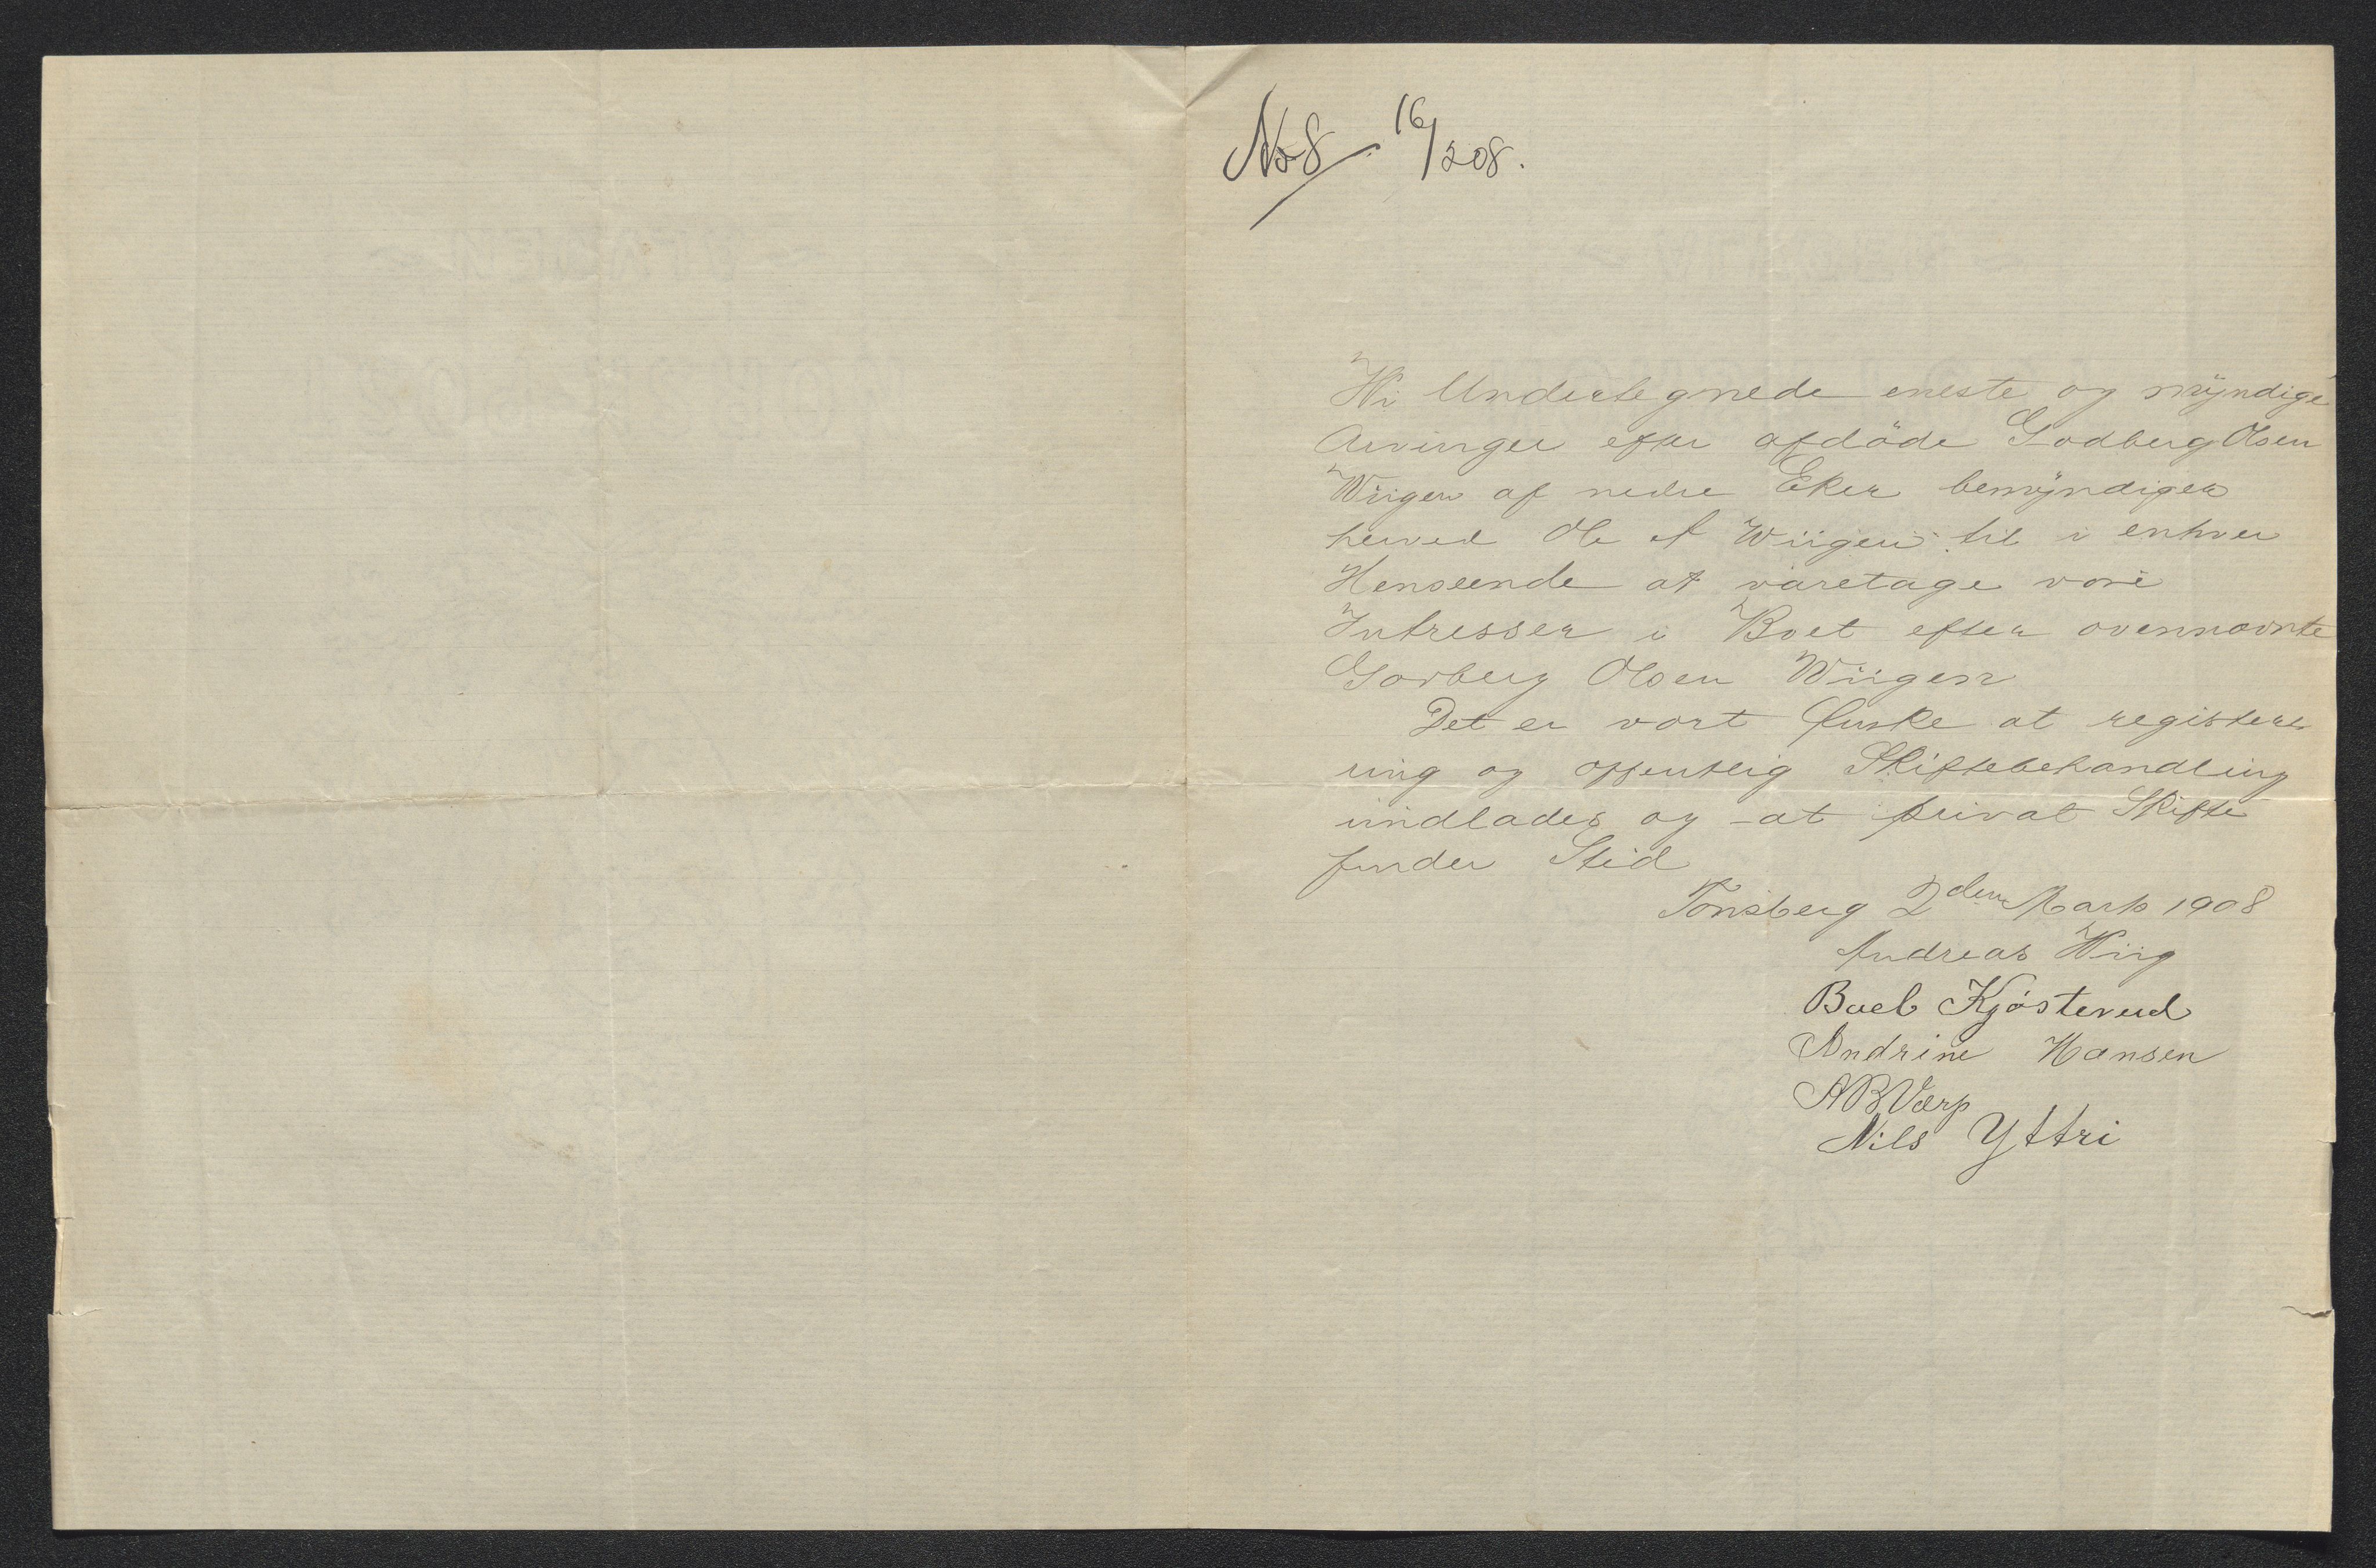 No 8. 16/3 08.
Wi Undertegnede eneste og myndige
Arvinger efter afdöde Godberg Olsen
Wiigen af nedre Eker bemyndiger
herved Ole A Wiigen til i enhver
Henseende at varetage vore
Intresser i Boet efter ovennævnte
Gorberg Olsen Wiigen
Det er vort Önske at register
ring og offentlig Skiftebehandling
undlades og at privat Skifte
finder Sted
Tönsberg 2den Marts 1908
Andreas Wiig
Boel Kjösterud
Andrine Hansen
ABVærp
Nils Yttri